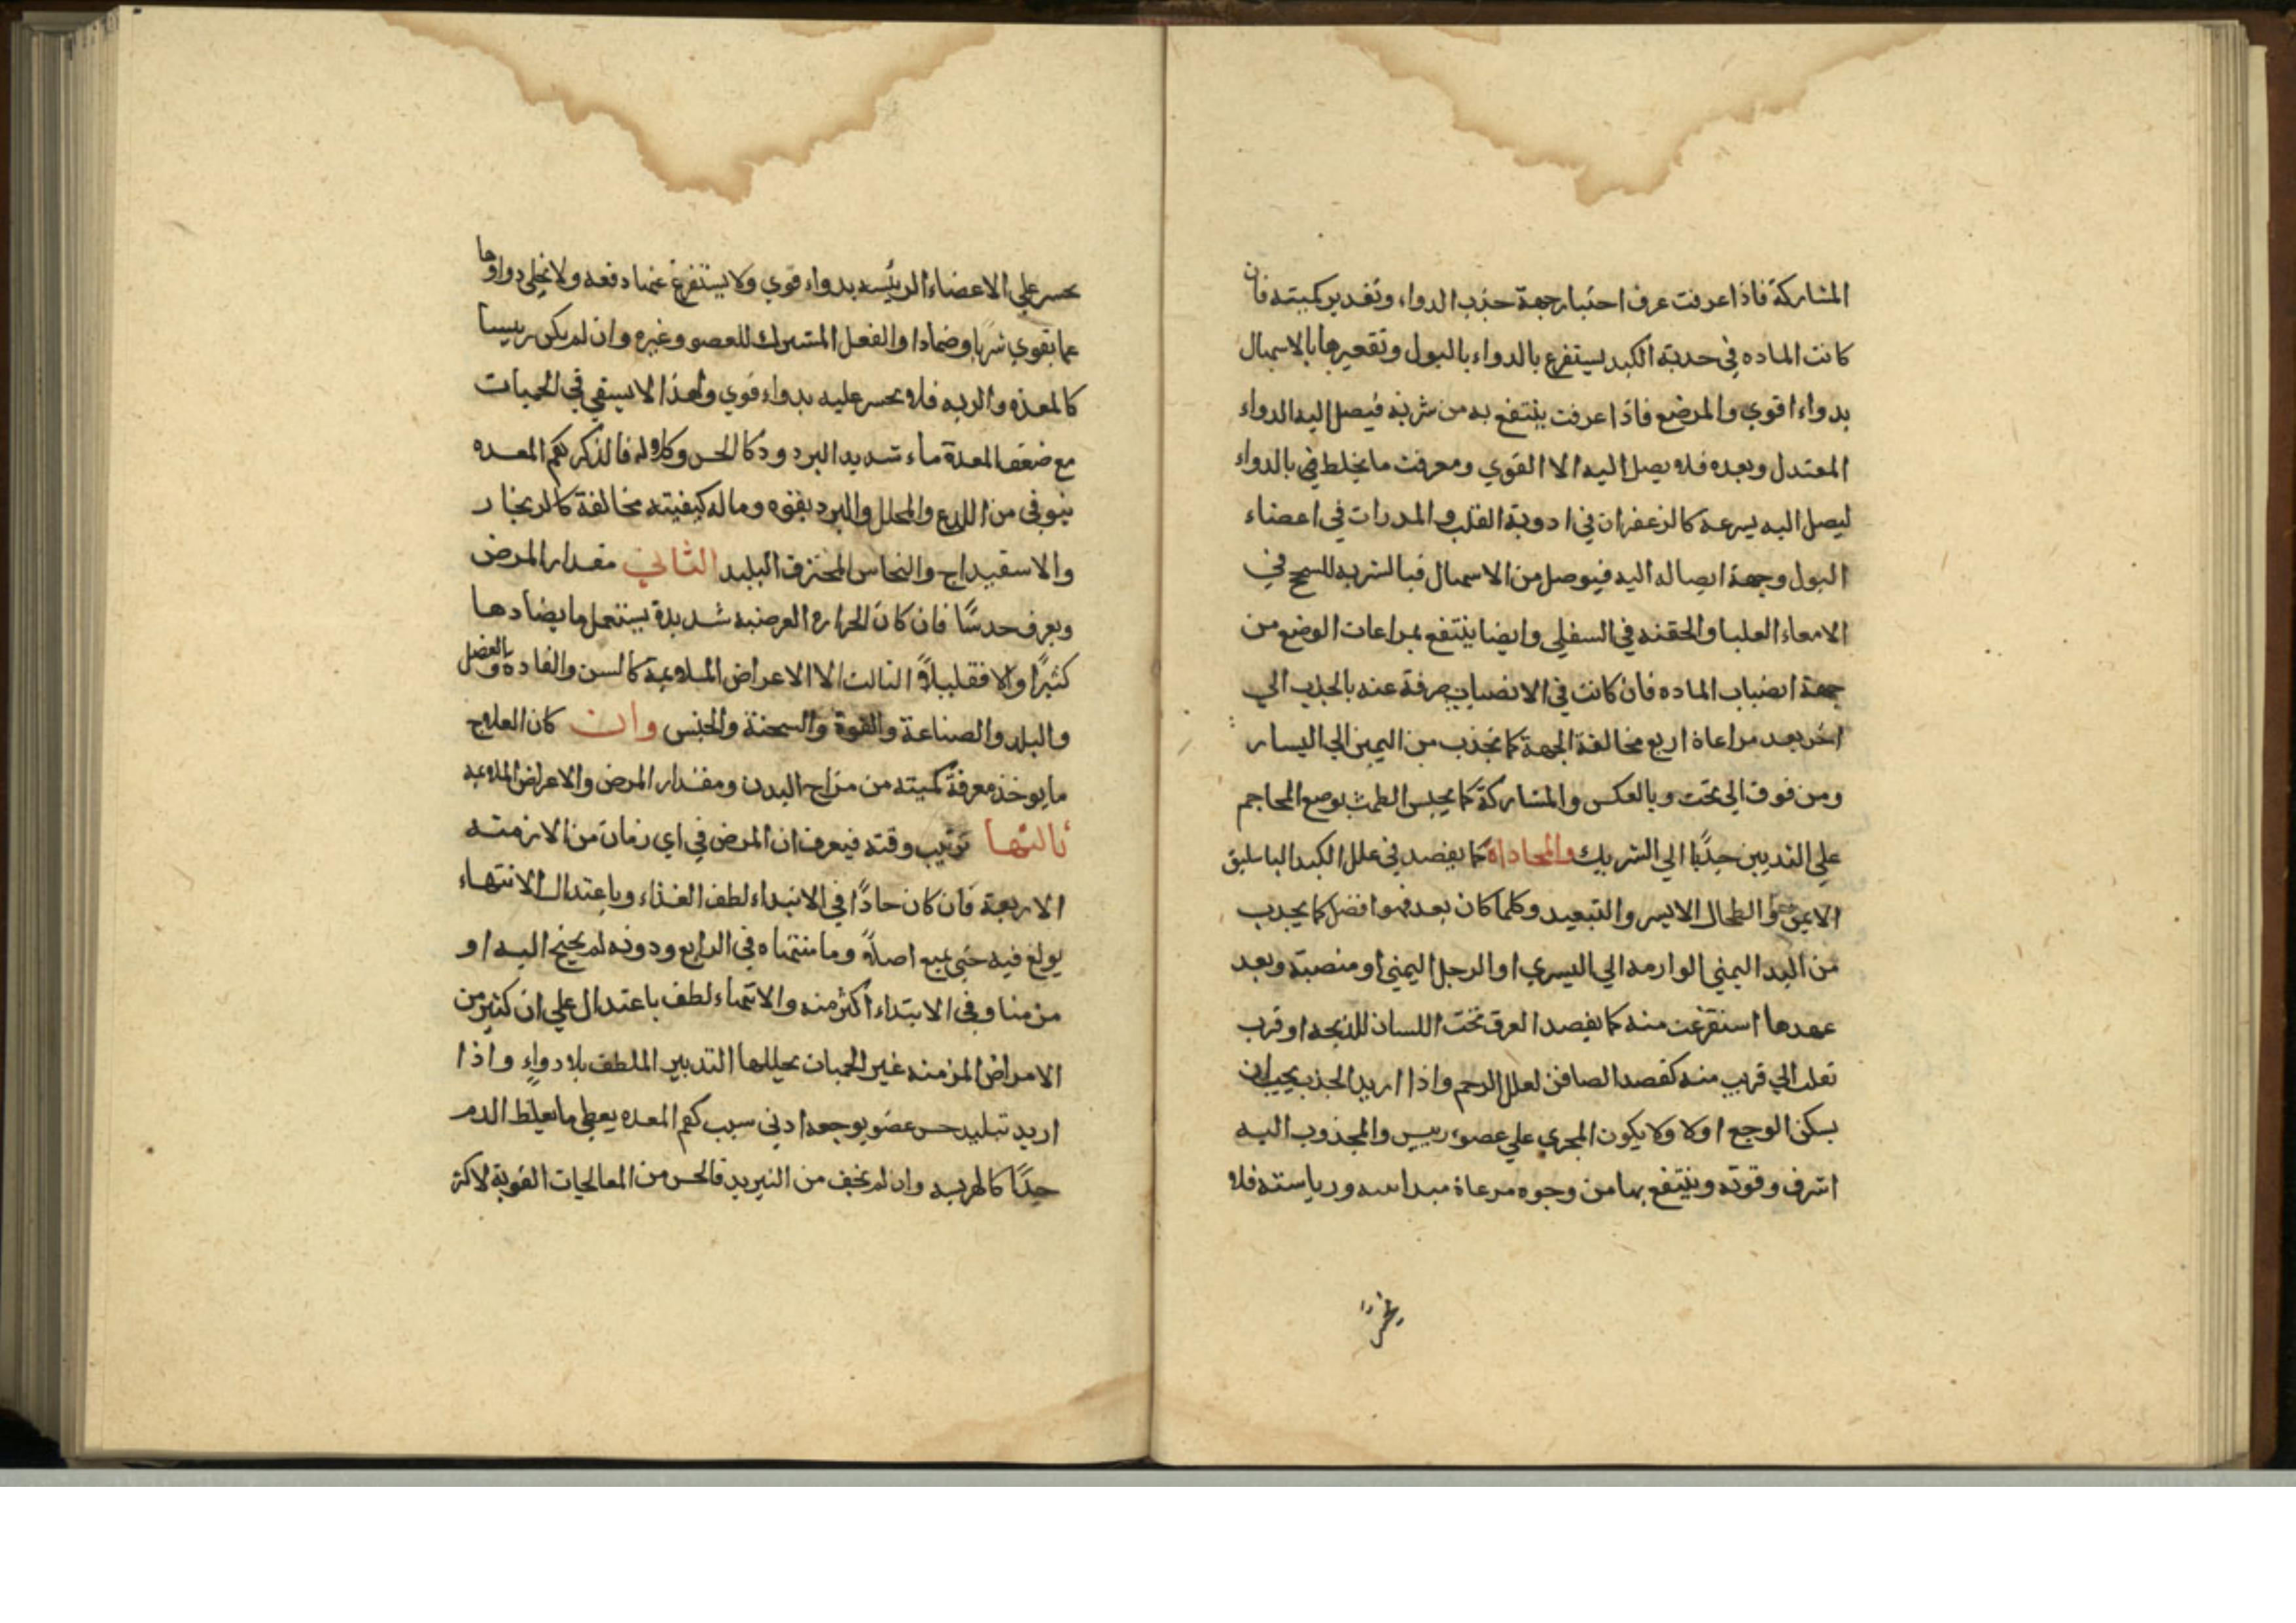 المشاركة فاذا عرفت عرف احتبار جهة حذب الدواء وتقدير كميته فان
كانت الماده في حدبة الكبد يستفرغ بالدواء بالبول وتقعيرها بالاسهال
بدواء اقوي والمرضع فاذا عرفت ينتفع به من شربة فيصل اليه الدواء
المعتدل وبعده فلا يصل اليه الا القوي ومعرفت ما يخلط في بالدواء
ليصل اليه يسرعة كالزعفران في ادوية القلب والمدرات في اعضاء
البول وجهة ايصاله اليه فيوصل من الاسهال فبالشربه للسحج في
الامعاء العليا والحقنه في السفلي وايضا ينتفع بمراعات الوضع من
جهة انضباب الماده فان كانت في الانصباب صرفة عنه بالجذب الي
اخر بعد مراعاة اربع مخالفة الجهة كما تجذب من اليمين الي اليسار
ومن فوق الي تحت وبالعكس والمشاركة كما يحبس الطمث بوضع المحاجم
علي الثديين جذبا الي الشريك والمحاداة كما يفصد في علل الكبد الباسليق
الايمن والطحال الايسر والتبعيد وكلما كان بعد فهو افضل كما يجدب
من اليد اليمني الوارمه الي اليسري او الرجل اليمني او منصبة وبعد
عهدها استفرغت منه كما يفصد العرق تحت اللسان للذبحه او قرب
نقلت الي قريب منه كفصد الصافن لعلل الرحم واذا اريد الجذب يجب ان
يسكن الوجع اولا ولا يكون المجري علي عصوء رييس والمجذوب اليه
اشرف وقوته وينتفع بها من وجوه مرعاة مبداسه ورياسته فلا
يحسر
يحسر علي الاعضاء الرئيسه بدواء قوي ولا يستفرغ عنها دفعه ولا يخلي دواوها
عما يقوي شربا وضمادا والفعل المشترك للعصو وغيره وان لم يكن رييسا
كالمعده والريه فلا يحسر عليه بدواء قوي ولهذا لا يسقي في الحميات
مع ضعف المعدة ماء شديد البرد ودكا الحس وكلاله فالذكر كفم المعده
يتوقي من اللذع والمحلل والمبرد بقوه وماله كيفيته مخالفة كالزنجار
والاسقيداج والنحاس المحترق البليد الثاني مقدار المرض
ويعرف حدسًا فان كان الحراره العرضيه شديدة يستعمل ما يضادها
كثيرًا والا فقليلاً الثالث الا الاعراض الملاءيمة كالسن والعاده والفصل
والبلد والصناعة والقوة والسحنة والجنس وان كان العلاج
ما يوخذ معرفة كميته من مزاج البدن ومقدار المرض والاعراض الملاءيمه
ثالثها ترتيب وقته فيعرف ان المرض في اي زمان من الازمنه
الاربعة فان كان حادًا في الابتداء لطف الغذاء وباعتدال الانتهاء
يولغ فيه حتي يمنع اصلاً وما منتهاه في الرابع ودونه لم يحتج اليه او
مزمنا وفي الابتداء اكثر منه والانتهاء لطف باعتدال علي ان كثير من
الامراض المزمنه غير الحميات يحللها التدبير الملطف بلا دواءٍ واذا
اريد تبليد حس عضو يوجعه ادني سبب كفم المعده يعطي ما يغلظ الدم
جيدًا كالهريسه وان لم يخف من التبريد فالحس من المعالجات القوية لاكثر